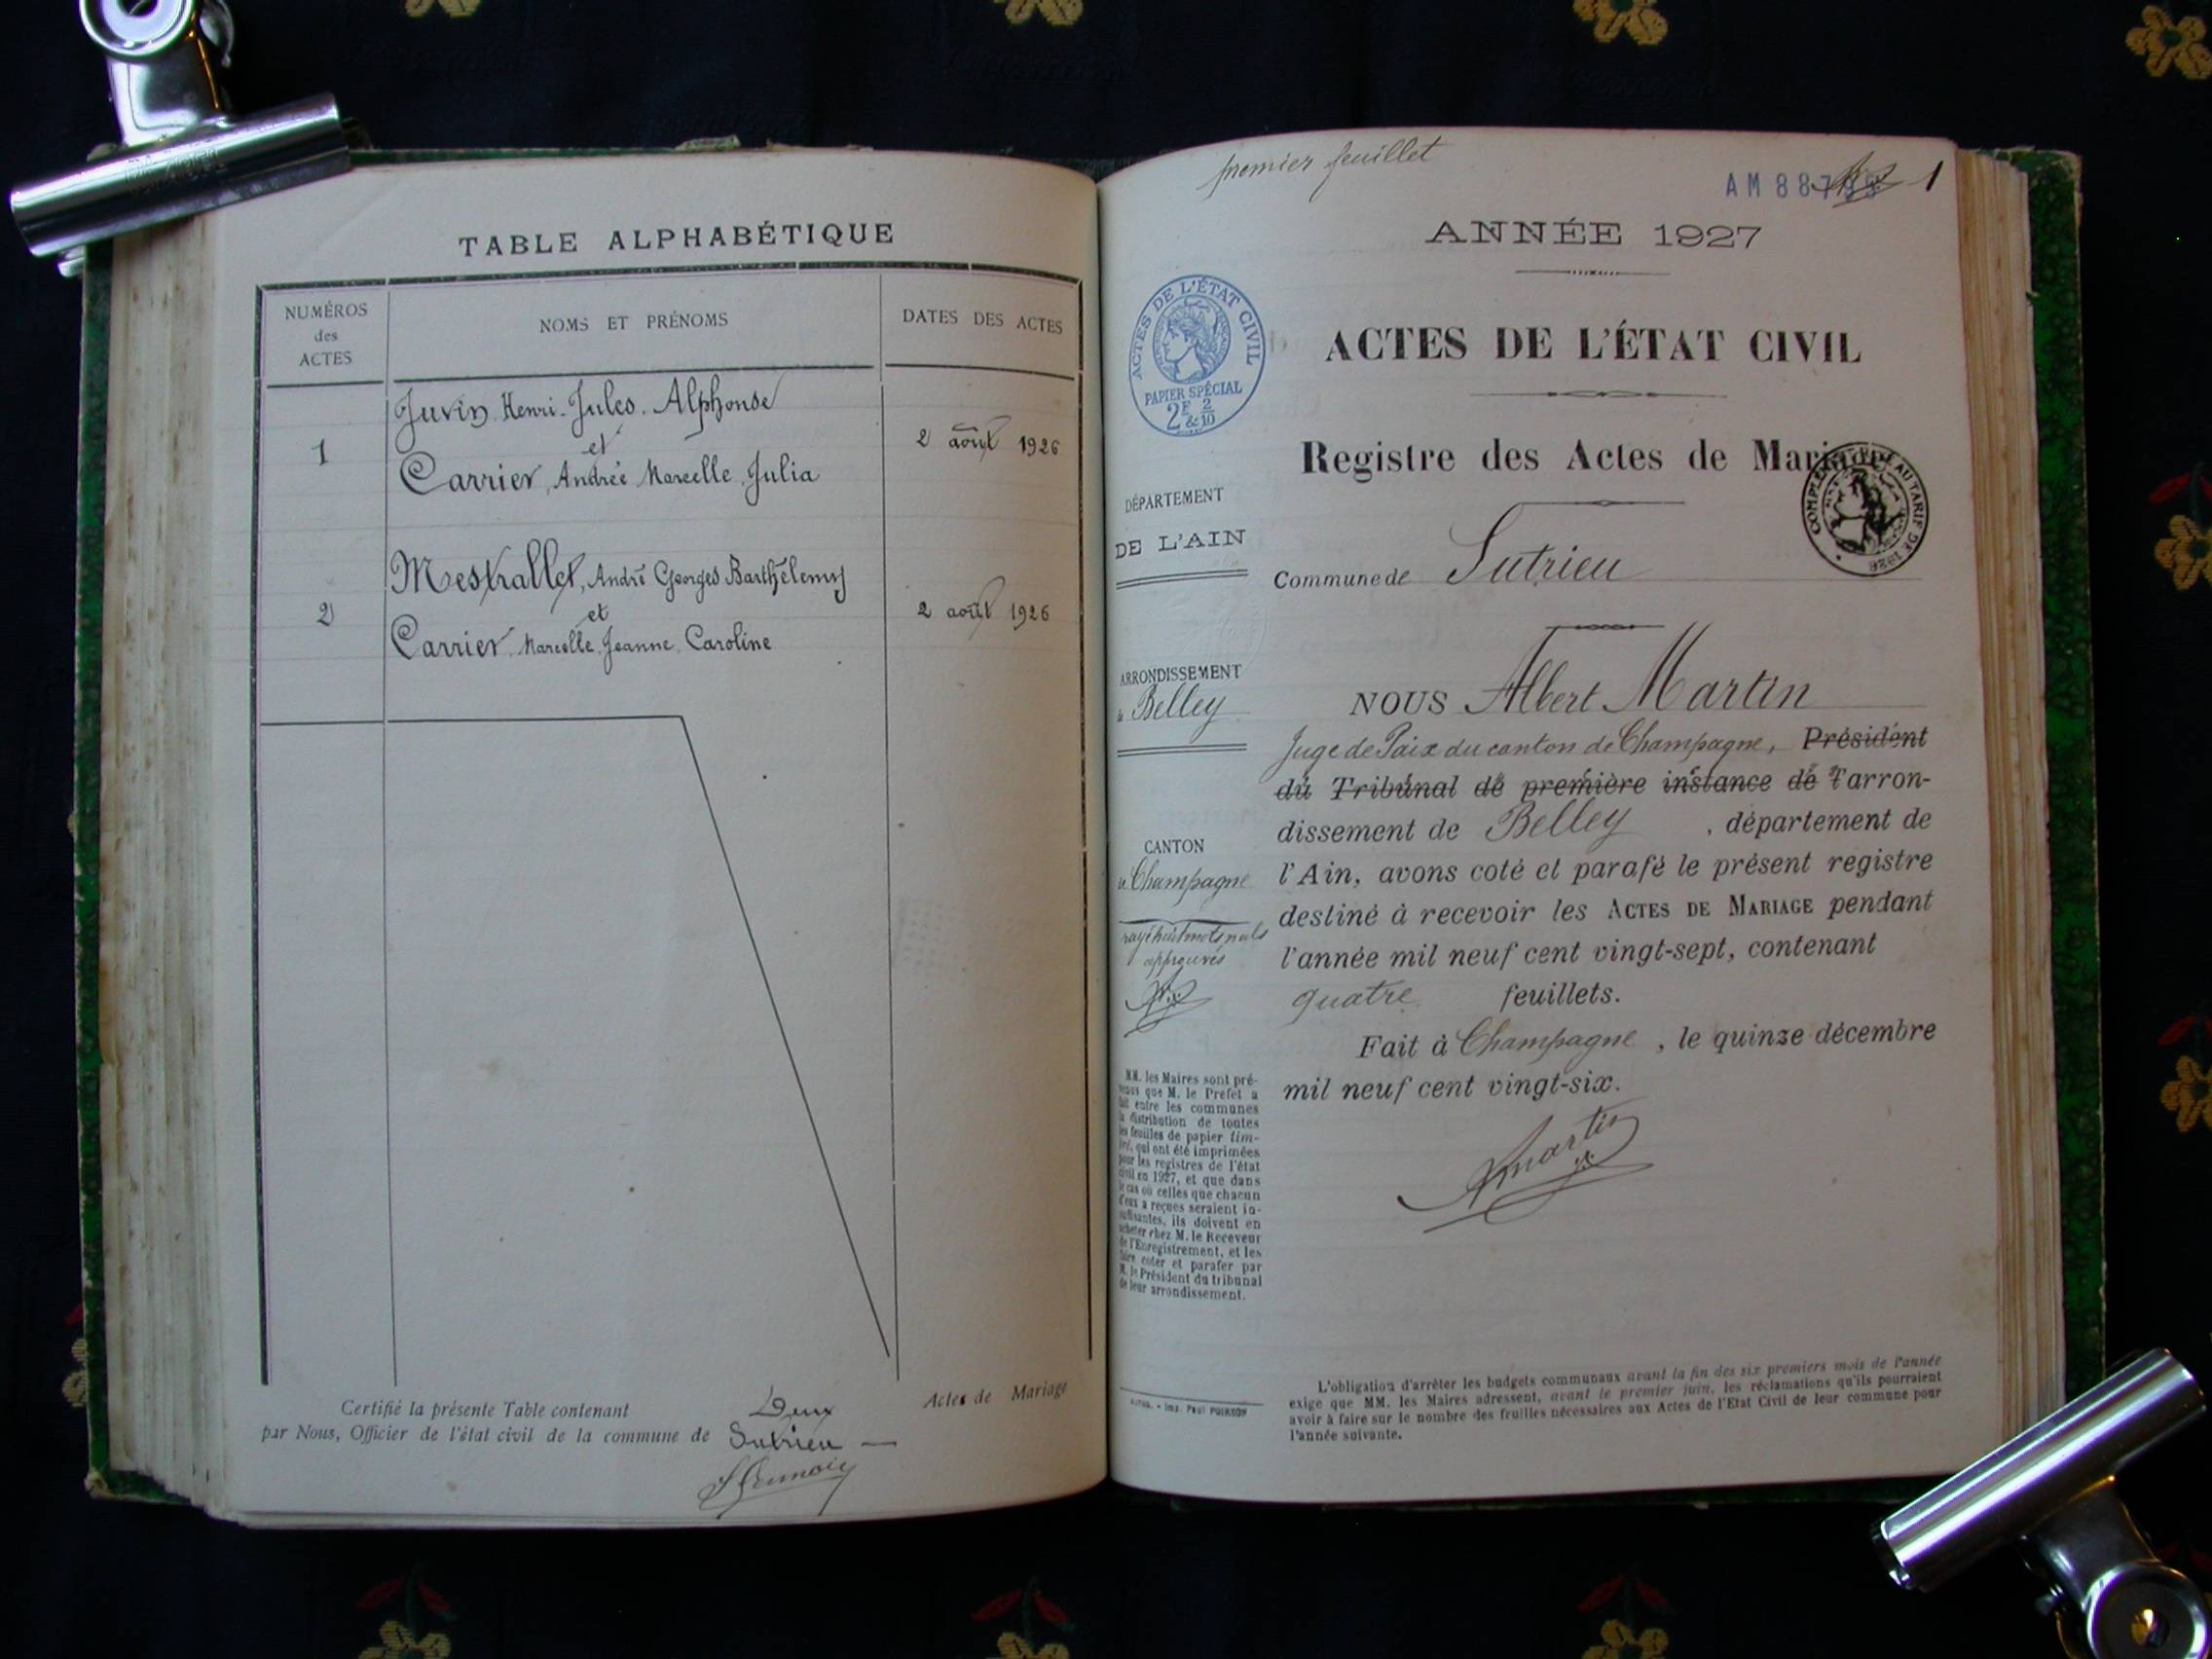 TABLE ALPHABÉTIQUE
NUMÉROS
des
ACTES
NOMS ET PRÉNOMS
DATES DES ACTES
Juvin Henri-Jules-Alphonse
et
1
2 août 1926
Carrier, Andrée Marcelle Julia
Mestrallet, André Georges Barthélemy
et
2
2 août 1926
Carrier Marcelle Jeanne Caroline
Certifié la présente Table contenant Deux Actes de Mariage
par Nous, Officier de l'état civil de la commune de Sutrieu
premier feuillet
AM 88 1
ANNÉE 1927
ACTES DE L'ÉTAT CIVIL
PAPIER SPÉCIAL
2F & 2/10
ACTES DE L'ÉTAT CIVIL
Registre des Actes de Mariage
COMPLÉMENT AU TARIF DE 1926
DÉPARTEMENT
DE L'AIN
Commune de Sutrieu
ARRONDISSEMENT
de Belley
CANTON
de Champagne
rayé huit mots nuls
approuvés
NOUS Albert Martin
Juge de Paix du canton de Champagne, Président
du Tribunal de première instance de l'arron-
dissement de Belley, département de
l'Ain, avons coté et parafé le présent registre
destiné à recevoir les ACTES DE MARIAGE pendant
l'année mil neuf cent vingt-sept, contenant
quatre feuillets.
Fait à Champagne, le quinze décembre
mil neuf cent vingt-six.
AMartin
MM. les Maires sont pré-
venus que M. le Préfet a
fait entre les communes
la distribution de toutes
les feuilles de papier tim-
bré, qui ont été imprimées
pour les registres de l'état
civil en 1927, et que dans
le cas où celles que chacun
d'eux a reçues seraient in-
suffisantes, ils doivent en
acheter chez M. le Receveur
de l'Enregistrement, et les
faire coter et parafer par
M. le Président du tribunal
de leur arrondissement.
Imp. Paul
L'obligation d'arrêter les budgets communaux avant la fin des six premiers mois de l'année
exige que MM. les Maires adressent, avant le premier juin, les réclamations qu'ils pourraient
avoir à faire sur le nombre des feuilles nécessaires aux Actes de l'Etat Civil de leur commune pour
l'année suivante.